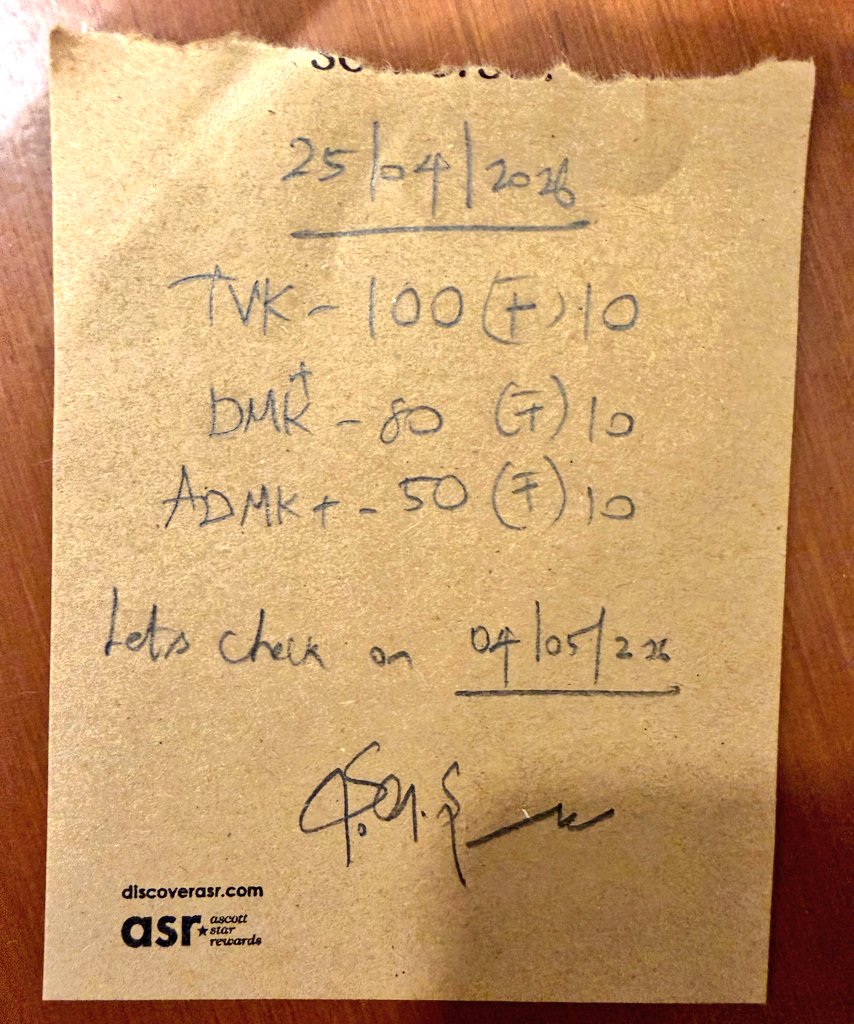 25/04/2026
TVK - 100 (∓) 10
DMK+ - 80 (∓) 10
ADMK + - 50 (∓) 10
Let's check on 04/05/2026
discoverasr.com
asr★ ascott star rewards